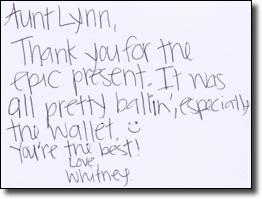 Aunt Lynn,
Thank you for the
epic present. It was
all pretty ballin', especially
the wallet. :)
You're the best!
Love
Whitney.